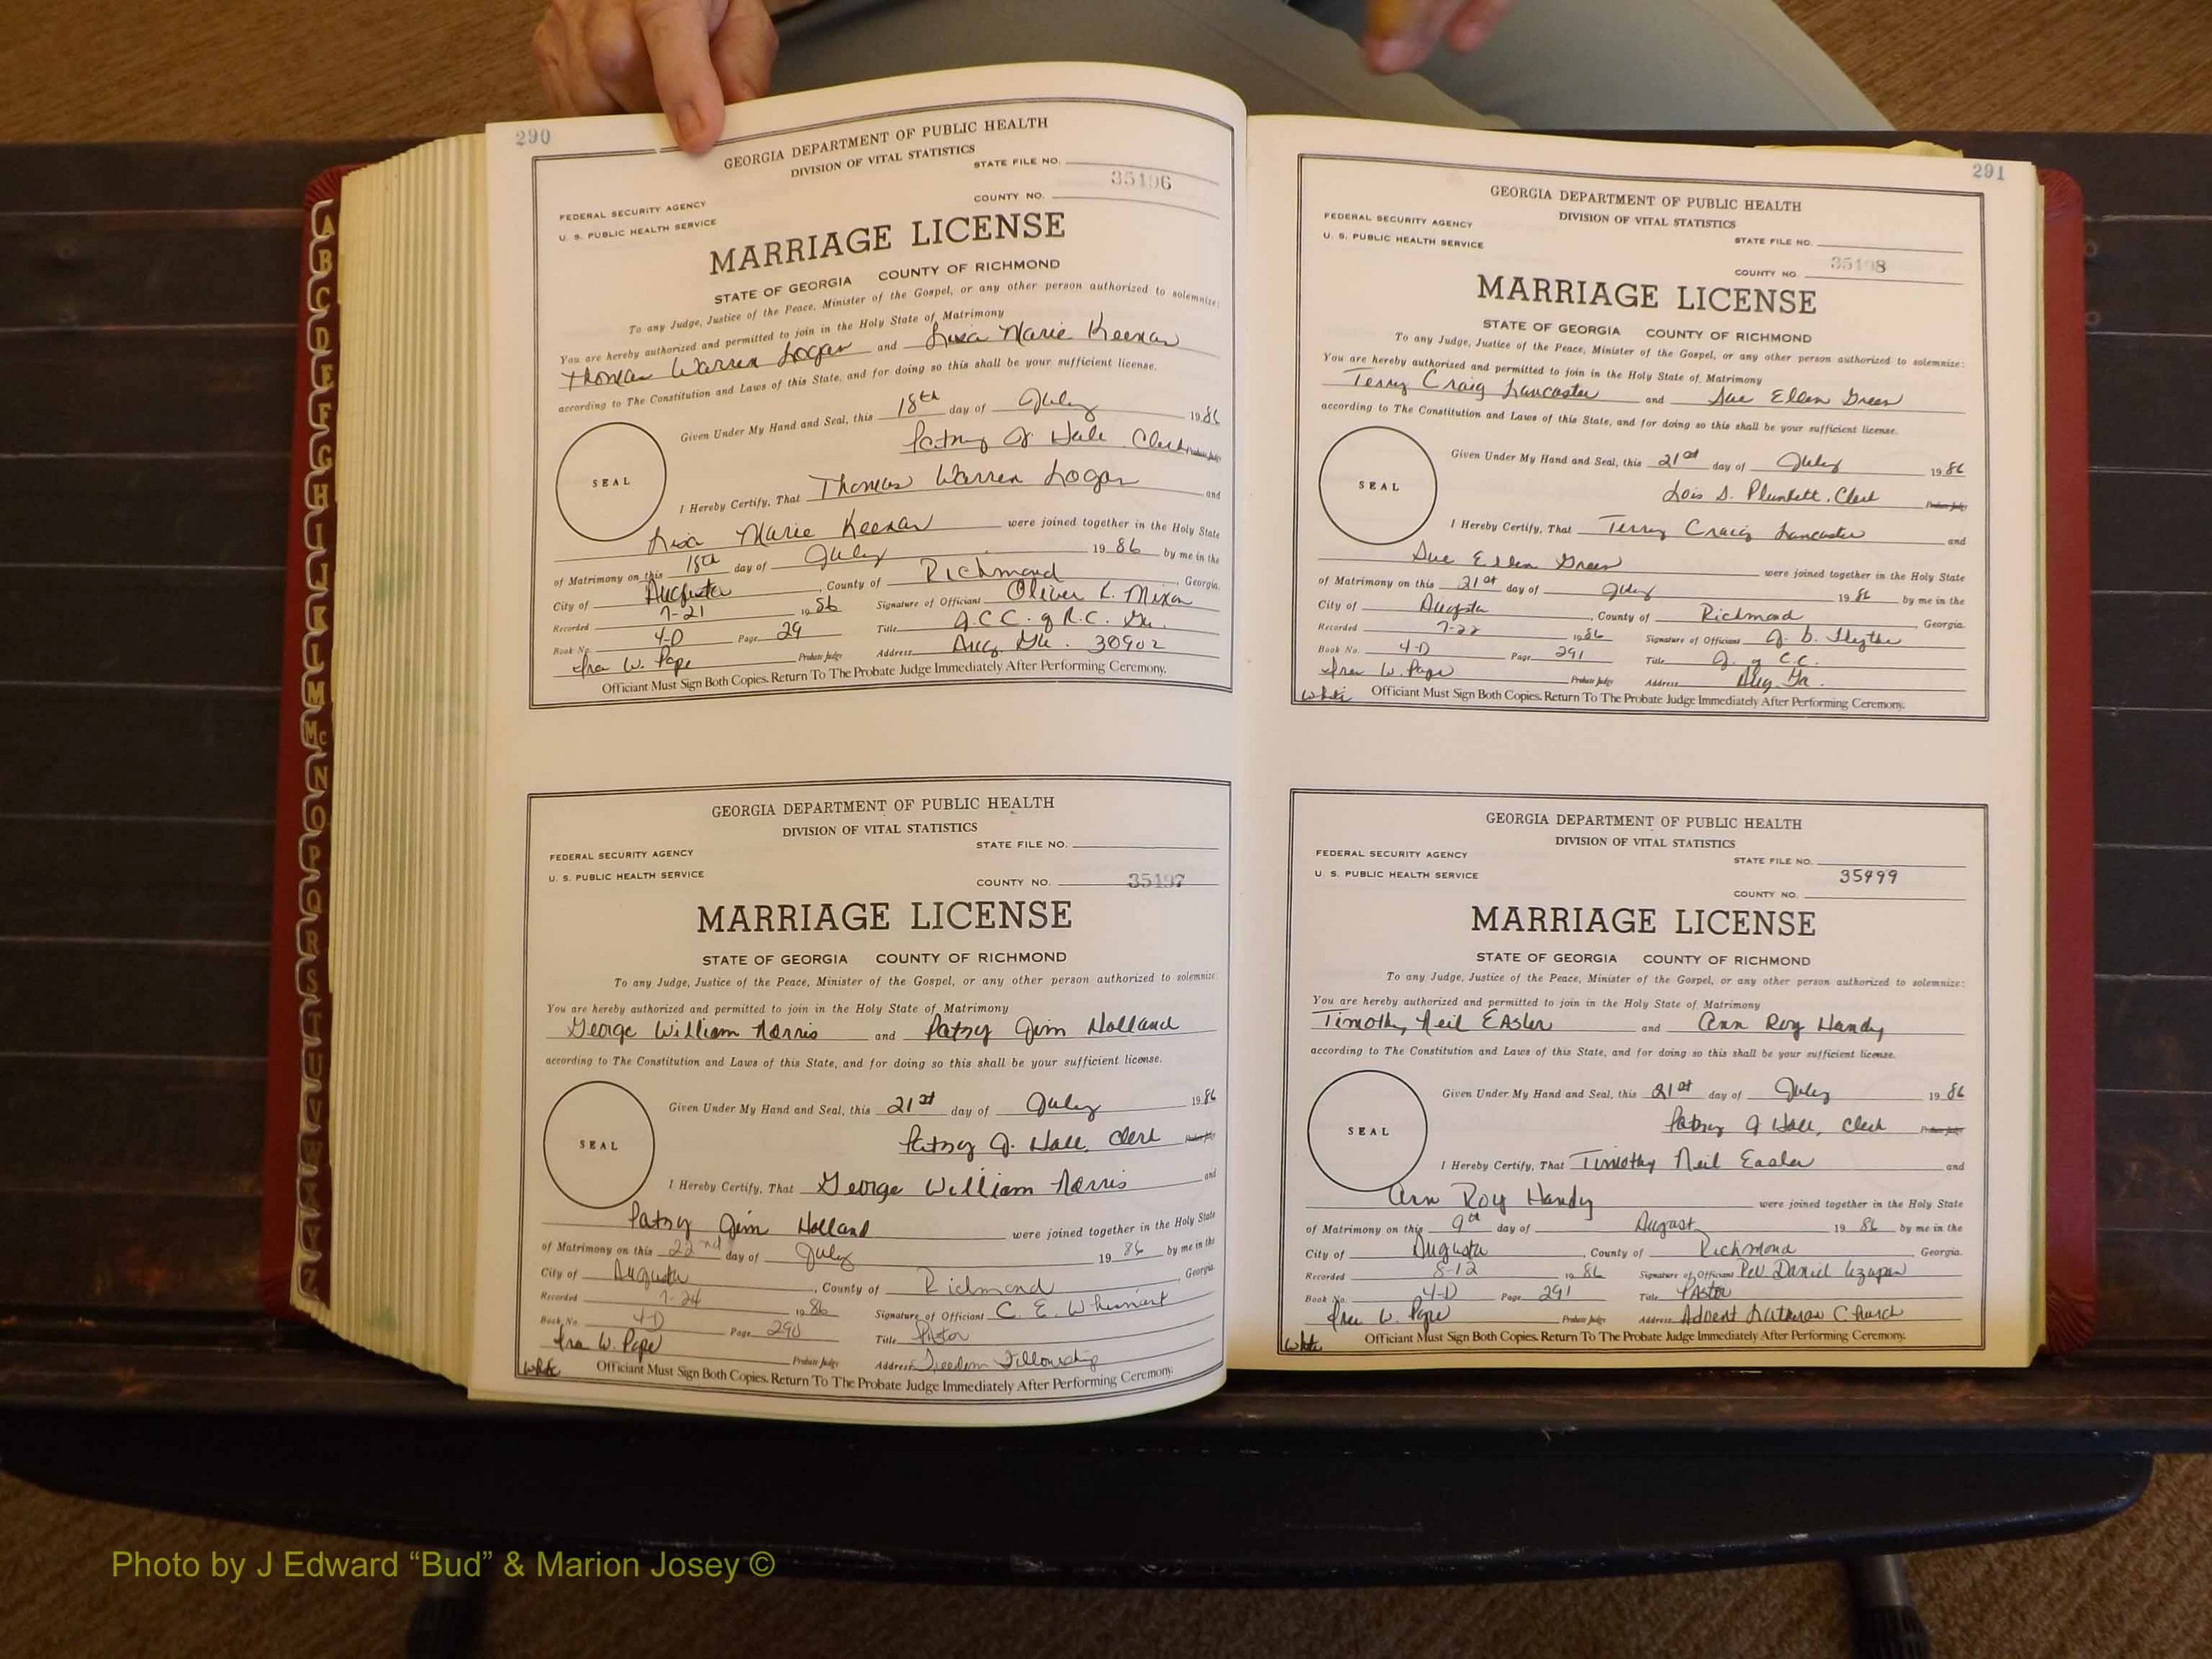 290
GEORGIA DEPARTMENT OF PUBLIC HEALTH
DIVISION OF VITAL STATISTICS
STATE FILE NO.
35196
FEDERAL SECURITY AGENCY
COUNTY NO.
U. S. PUBLIC HEALTH SERVICE
MARRIAGE LICENSE
STATE OF GEORGIA COUNTY OF RICHMOND
To any Judge, Justice of the Peace, Minister of the Gospel, or any other person authorized to solemnize:
You are hereby authorized and permitted to join in the Holy State of Matrimony
Thomas Warren Logan and Lisa Marie Keenan
according to The Constitution and Laws of this State, and for doing so this shall be your sufficient license.
Given Under My Hand and Seal, this 18th day of July 1986
Patsy J. Hall Clerk Probate Judge
SEAL
I Hereby Certify, That Thomas Warren Logan and
Lisa Marie Keenan were joined together in the Holy State
of Matrimony on this 18th day of July 1986 by me in the
City of Augusta, County of Richmond, Georgia.
Recorded 7-21 1986 Signature of Officiant Oliver L. Mixon
Book No. 4-D Page 29 Title J.C.C. of R.C. Ga.
Ira W. Pape Probate Judge Address Aug Ga. 30902
Officiant Must Sign Both Copies. Return To The Probate Judge Immediately After Performing Ceremony.
GEORGIA DEPARTMENT OF PUBLIC HEALTH
DIVISION OF VITAL STATISTICS
STATE FILE NO.
FEDERAL SECURITY AGENCY
U. S. PUBLIC HEALTH SERVICE
COUNTY NO. 35197
MARRIAGE LICENSE
STATE OF GEORGIA COUNTY OF RICHMOND
To any Judge, Justice of the Peace, Minister of the Gospel, or any other person authorized to solemnize:
You are hereby authorized and permitted to join in the Holy State of Matrimony
George William Norris and Patsy Jim Holland
according to The Constitution and Laws of this State, and for doing so this shall be your sufficient license.
Given Under My Hand and Seal, this 21st day of July 1986
Patsy J. Hall, Clerk Probate Judge
SEAL
I Hereby Certify, That George William Norris and
Patsy Jim Holland were joined together in the Holy State
of Matrimony on this 22nd day of July 1986 by me in the
City of Augusta, County of Richmond, Georgia
Recorded 7-24 1986 Signature of Officiant C. E. Whisnant
Book No. 4-D Page 290 Title Pastor
Ira W. Pape Probate Judge Address Freedom Fellowship
White Officiant Must Sign Both Copies. Return To The Probate Judge Immediately After Performing Ceremony.
291
GEORGIA DEPARTMENT OF PUBLIC HEALTH
DIVISION OF VITAL STATISTICS
FEDERAL SECURITY AGENCY
STATE FILE NO.
U. S. PUBLIC HEALTH SERVICE
35198
COUNTY NO.
MARRIAGE LICENSE
STATE OF GEORGIA COUNTY OF RICHMOND
To any Judge, Justice of the Peace, Minister of the Gospel, or any other person authorized to solemnize:
You are hereby authorized and permitted to join in the Holy State of Matrimony
Terry Craig Lancaster and Sue Ellen Green
according to The Constitution and Laws of this State, and for doing so this shall be your sufficient license.
Given Under My Hand and Seal, this 21st day of July 1986
Lois S. Plunkett, Clerk Probate Judge
SEAL
I Hereby Certify, That Terry Craig Lancaster and
Sue Ellen Green were joined together in the Holy State
of Matrimony on this 21st day of July 1986 by me in the
City of Augusta, County of Richmond, Georgia
Recorded 7-22 1986 Signature of Officiant J. B.
Book No. 4-D Page 291 Title J. of C.C.
Ira W. Pape Probate Judge Address Aug Ga.
White Officiant Must Sign Both Copies. Return To The Probate Judge Immediately After Performing Ceremony.
GEORGIA DEPARTMENT OF PUBLIC HEALTH
DIVISION OF VITAL STATISTICS
FEDERAL SECURITY AGENCY
STATE FILE NO.
U. S. PUBLIC HEALTH SERVICE
35499
COUNTY NO.
MARRIAGE LICENSE
STATE OF GEORGIA COUNTY OF RICHMOND
To any Judge, Justice of the Peace, Minister of the Gospel, or any other person authorized to solemnize:
You are hereby authorized and permitted to join in the Holy State of Matrimony
Timothy Neil Easler and Ann Roy Handy
according to The Constitution and Laws of this State, and for doing so this shall be your sufficient license.
Given Under My Hand and Seal, this 21st day of July 1986
Patsy J Hall, Clerk Probate Judge
SEAL
I Hereby Certify, That Timothy Neil Easler and
Ann Roy Handy were joined together in the Holy State
of Matrimony on this 9th day of August 1986 by me in the
City of Augusta, County of Richmond, Georgia.
Recorded 8-12 1986 Signature of Officiant Rev. Daniel
Book No. 4-D Page 291 Title Pastor
Ira W. Pape Probate Judge Address Advent Lutheran Church
White Officiant Must Sign Both Copies. Return To The Probate Judge Immediately After Performing Ceremony.
A
B
C
D
E
F
G
H
I
J
K
L
M
Mc
N
O
P
Q
R
S
T
U
V
W
X
Y
Z
Photo by J Edward “Bud” & Marion Josey ©